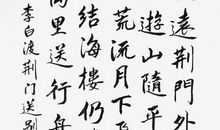 遠荆門外
遊山隨平
荒流月下
结海樓仍
里送行舟
李白渡荆门送别